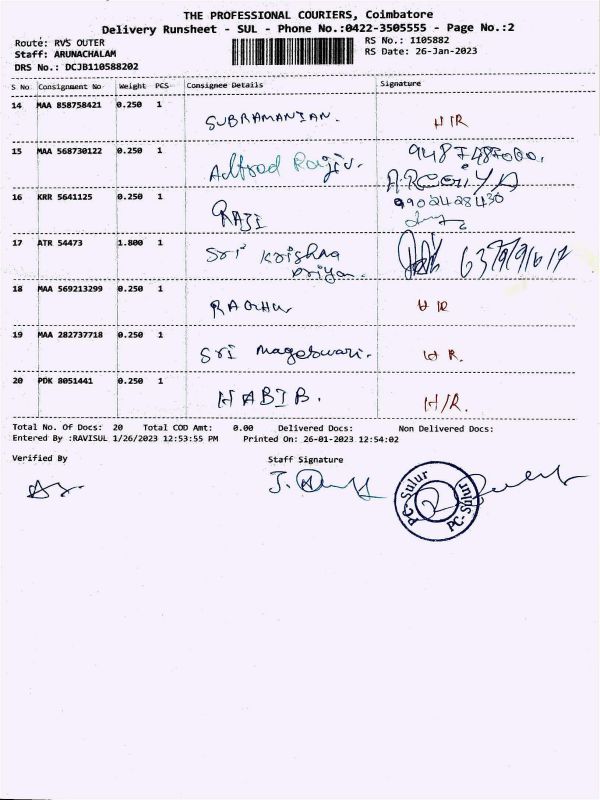 THE PROFESSIONAL COURIERS, Coimbatore
Delivery Runsheet - SUL - Phone No.:0422-3505555 - Page No.:2
Route: RVS OUTER
RS No.: 1105882
Staff: ARUNACHALAM
RS Date: 26-Jan-2023
DRS No.: DCJB110588202
S No Consignment No Weight PCS Consignee Details Signature
14 MAA 858758421 0.250 1 SUBRAMANIAN. H IR
15 MAA 568730122 0.250 1 Alfrod Rajiv.
16 KRR 5641125 0.250 1 RAJI 9902428430
17 ATR 54473 1.800 1 Sri Krishna
Priya.
18 MAA 569213299 0.250 1 RAGHU H IR
19 MAA 282737718 0.250 1 Sri Mageswari. H R.
20 PDK 8051441 0.250 1 HABIB. H/R.
Total No. Of Docs: 20 Total COD Amt: 0.00 Delivered Docs: Non Delivered Docs:
Entered By :RAVISUL 1/26/2023 12:53:55 PM Printed On: 26-01-2023 12:54:02
Verified By Staff Signature
PC-Sulur
PC-Sulur